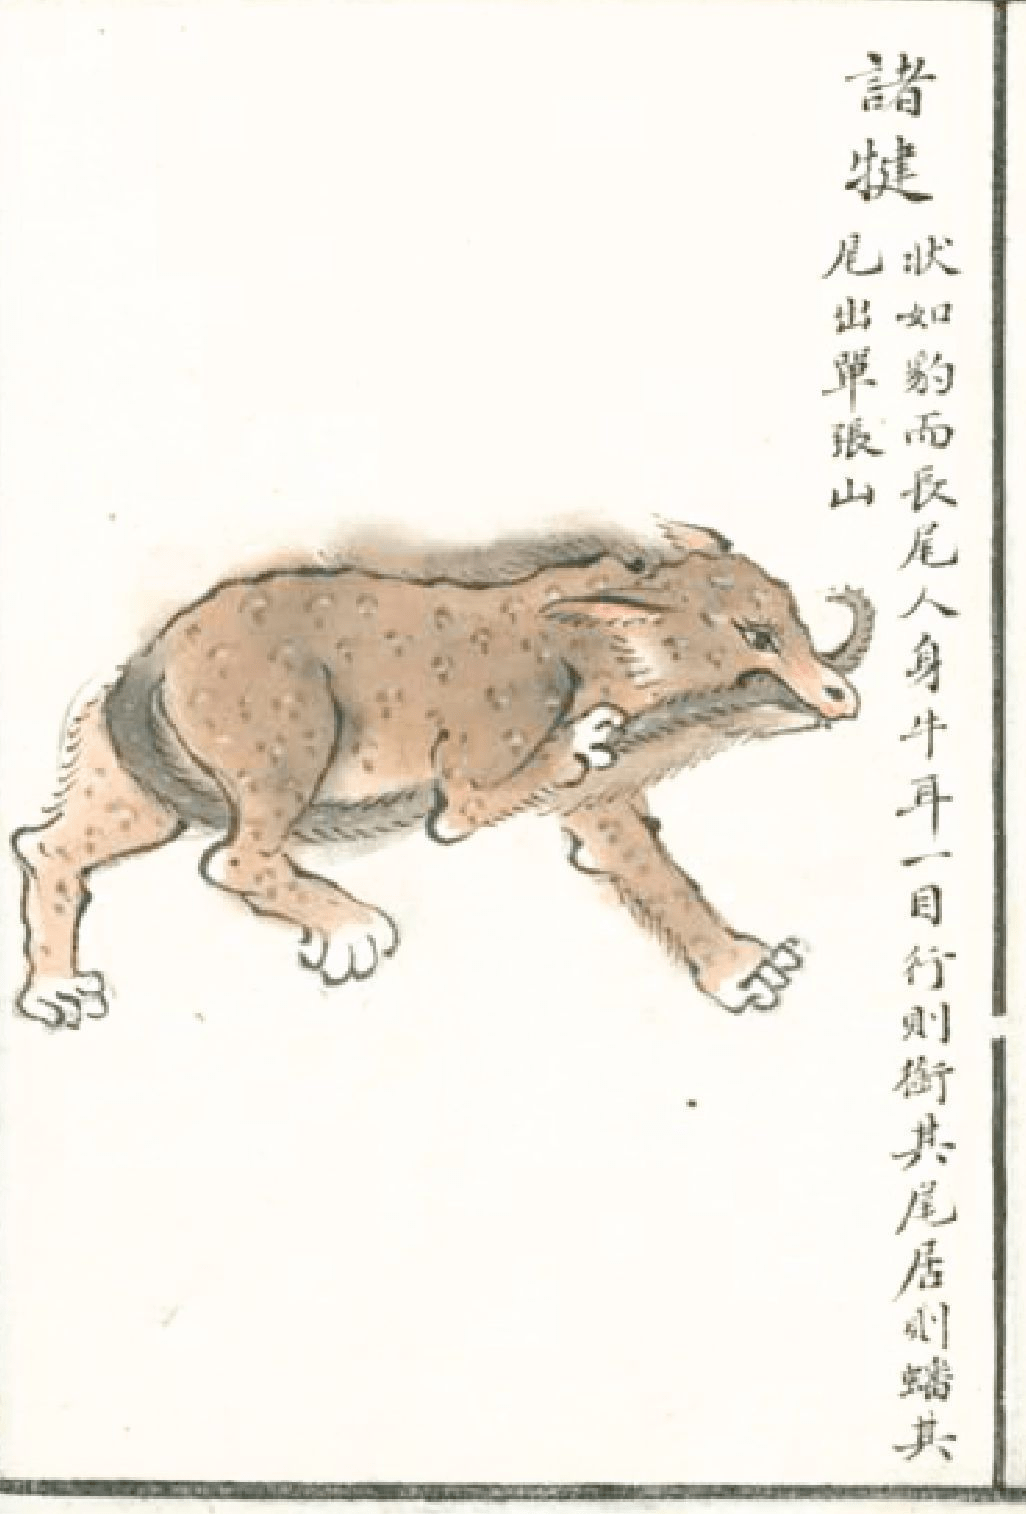 諸犍
狀如豹而長尾人身牛耳一目行則銜其尾居則蟠其
尾出單張山